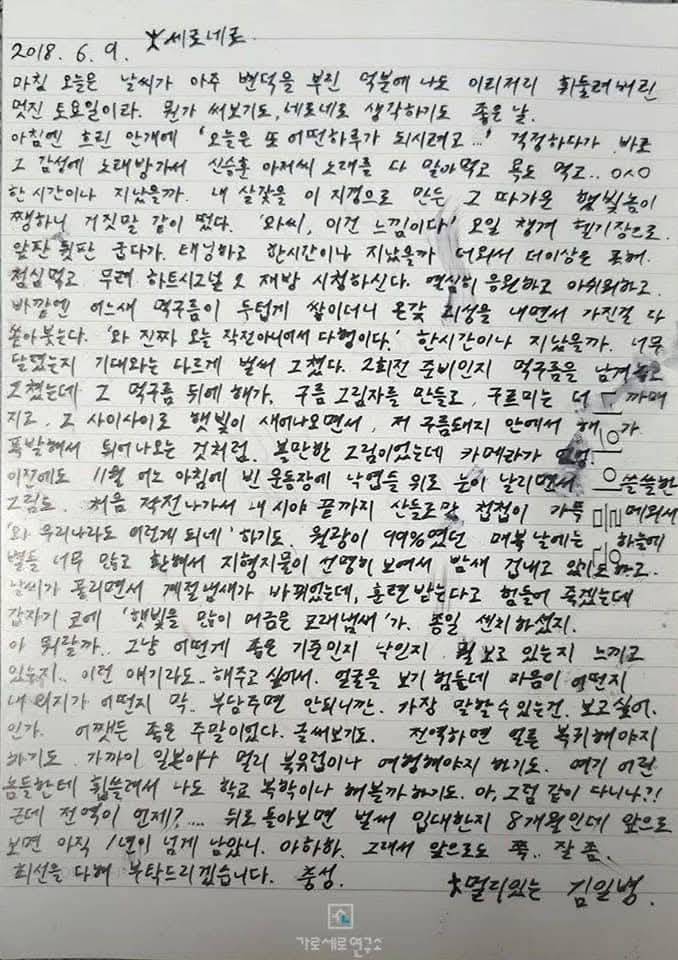 2018. 6. 9. ☆세로네로
마침 오늘은 날씨가 아주 변덕을 부린 덕분에 나도 이리저리 휘둘려버린
멋진 토요일이라. 뭔가 써보기도, 네로네로 생각하기도 좋은 날.
아침엔 흐린 안개에 '오늘은 또 어떤하루가 되시려고...' 걱정하다가 바로
그 감성에 노래방가서 신승훈 아저씨 노래를 다 말아먹고 욕도 먹고.. ㅇㅅㅇ
한시간이나 지났을까. 내 살갗을 이 지경으로 만든 그 따가운 햇빛놈이
쨍하니 거짓말 같이 떴다. '와씨, 이건 느낌이다!' 오일 챙겨 헬기장으로.
앞판 뒷판 굽다가. 태닝하고 한시간이나 지났을까 더워서 더이상은 못해.
점심먹고 무려 하트시그널 2 재방 시청하신다. 열심히 응원하고 아쉬워하고.
바깥엔 어느새 먹구름이 두텁게 쌓이더니 온갖 괴성을 내면서 가진걸 다
쏟아붓는다. '와 진짜 오늘 작전아니어서 다행이다.' 한시간이나 지났을까. 너무
달렸는지 기대와는 다르게 벌써 그쳤다. 2회전 준비인지 먹구름을 남겨놓고
그쳤는데 그 먹구름 뒤에 해가. 구름 그림자를 만들고, 구르미는 더 까매
지고, 그 사이사이로 햇빛이 새어나오면서, 저 구름돼지 안에서 해가
폭발해서 튀어나오는 것처럼. 볼만한 그림이었는데 카메라가 없엉
이전에도 11월 어느 아침에 빈 운동장에 낙엽들 위로 눈이 날리면서 쓸쓸한
그림도. 처음 작전나가서 내 시야 끝까지 산들로만 첩첩이 가득 메워서
'와 우리나라도 이런게 되네' 하기도. 월광이 99%였던 매복날에는 하늘에
별들 너무 많고 환해서 지형지물이 선명히 보여서 밤새 겁내고 있기도하고.
날씨가 풀리면서 계절냄새가 바뀌었는데, 훈련받는다고 힘들어 죽겠는데
갑자기 코에 '햇빛을 많이 머금은 모래냄새'가. 종일 센치하셨지.
아 뭐랄까.. 그냥 어떤게 좋은 기준인지 낙인지 뭘 보고 있는지 느끼고
있는지.. 이런 얘기라도.. 해주고 싶어서. 얼굴을 보기 힘들데 마음이 어떤지
내 의지가 어떤지 막.. 부담주면 안되니깐. 가장 말할수 있는건. 보고싶어.
인가. 어쨋든 좋은 주말이었다. 글써보기도. 전역하면 얼른 복귀해야지
하기도. 가까이 일본이나 멀리 북유럽이나 여행해야지 하기도. 여기 어린
놈들한테 휩쓸려서 나도 학교 복학이나 해볼까하기도. 아, 그럼 같이 다니나?!
근데 전역이 언제?.... 뒤로 돌아보면 벌써 입대한지 8개월인데 앞으로
보면 아직 1년이 넘게 남았니. 아하하. 그래서 앞으로도 쭉.. 잘 좀.
최선을 다해 부탁드리겠습니다. 충성.
☆멀리있는 김일병.
가로세로연구소